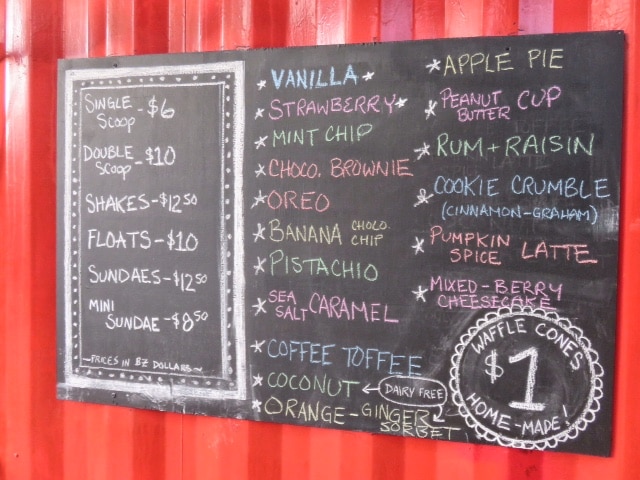 SINGLE SCOOP - $6
DOUBLE SCOOP - $10
SHAKES - $12 50
FLOATS - $10
SUNDAES - $12 50
MINI SUNDAE - $8 50
~ PRICES IN BZ DOLLARS ~
* VANILLA *
* STRAWBERRY *
* MINT CHIP
* CHOCO. BROWNIE
* OREO
* BANANA CHOCO. CHIP
* PISTACHIO
* SEA SALT CARAMEL
* COFFEE TOFFEE
* COCONUT ← DAIRY FREE
* ORANGE - GINGER SORBET
* APPLE PIE
* PEANUT BUTTER CUP
* RUM + RAISIN
* COOKIE CRUMBLE
(CINNAMON - GRAHAM)
* PUMPKIN SPICE LATTE
* MIXED - BERRY
CHEESECAKE
WAFFLE CONES
$1
HOME-MADE!